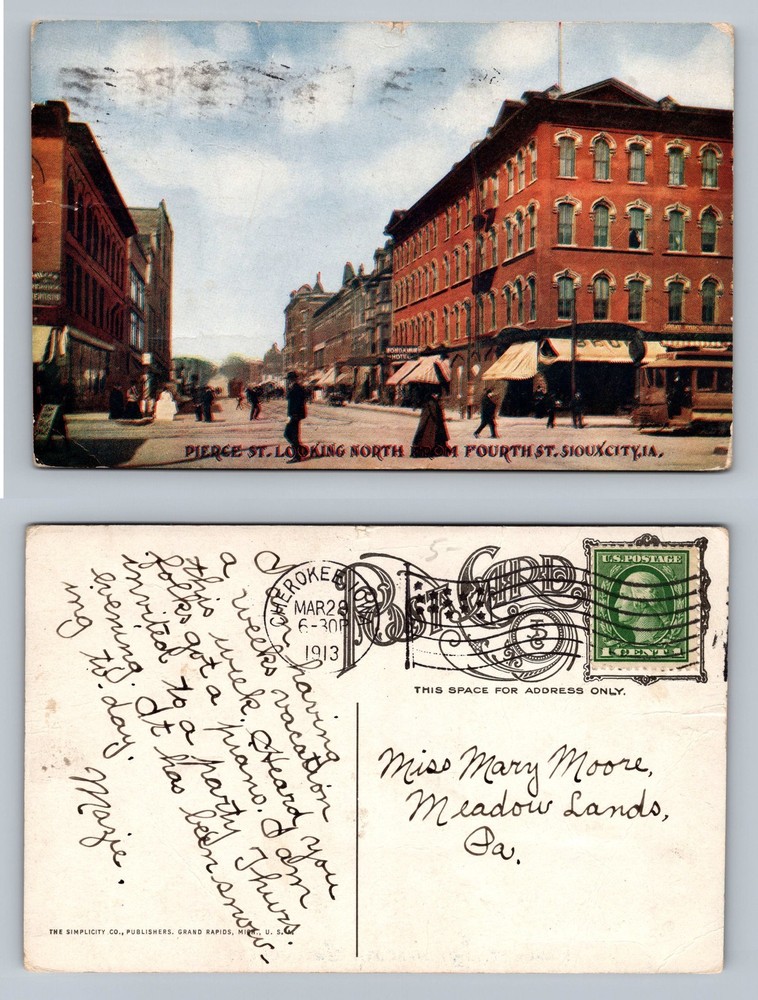 BOND
HOTEL
PIERCE ST. LOOKING NORTH FROM FOURTH ST. SIOUX CITY, IA,
CHEROKEE IOWA
MAR 28
6-30P
1913
5-
POST CARD
U.S. POSTAGE
1 CENT 1
THIS SPACE FOR ADDRESS ONLY.
I am having
a weeks vacation
this week. Heard you
folks got a piano. I am
invited to a party Thurs.
evening. It has been snow-
ing to-day.
Mazie.
Miss Mary Moore,
Meadow Lands,
Pa.
THE SIMPLICITY CO., PUBLISHERS. GRAND RAPIDS, MICH., U. S. A.